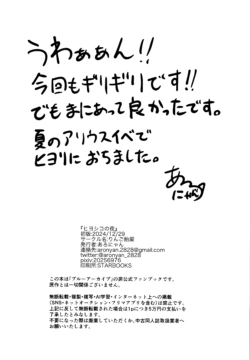 うわぁぁん!!
今回もギリギリです!!
でもまにあって良かったです。
夏のアリウスイベで
ヒヨリにおちました。
あろ
にゃん
『ヒヨシコの夜』
初版:2024/12/29
サークル名:りんご飴屋
発行者:あろにゃん
連絡先:aronyan.2828@gmail.com
twitter@aronyan_2828
pixiv:20256976
印刷所:STARBOOKS
この本は「ブルーアーカイブ」の非公式ファンブックです。
原作とは一切関係ございません。
無断転載・複製・複写・AI学習・インターネット上への掲載
(SNS・ネットオークション・フリマアプリを含む)は禁止です。
上記に反して無断転載された場合は1pにつき5万円の支払いを
了承したとみなします。
不要になった際は廃棄していただくか、中古同人誌取扱業者へ
お売りください。